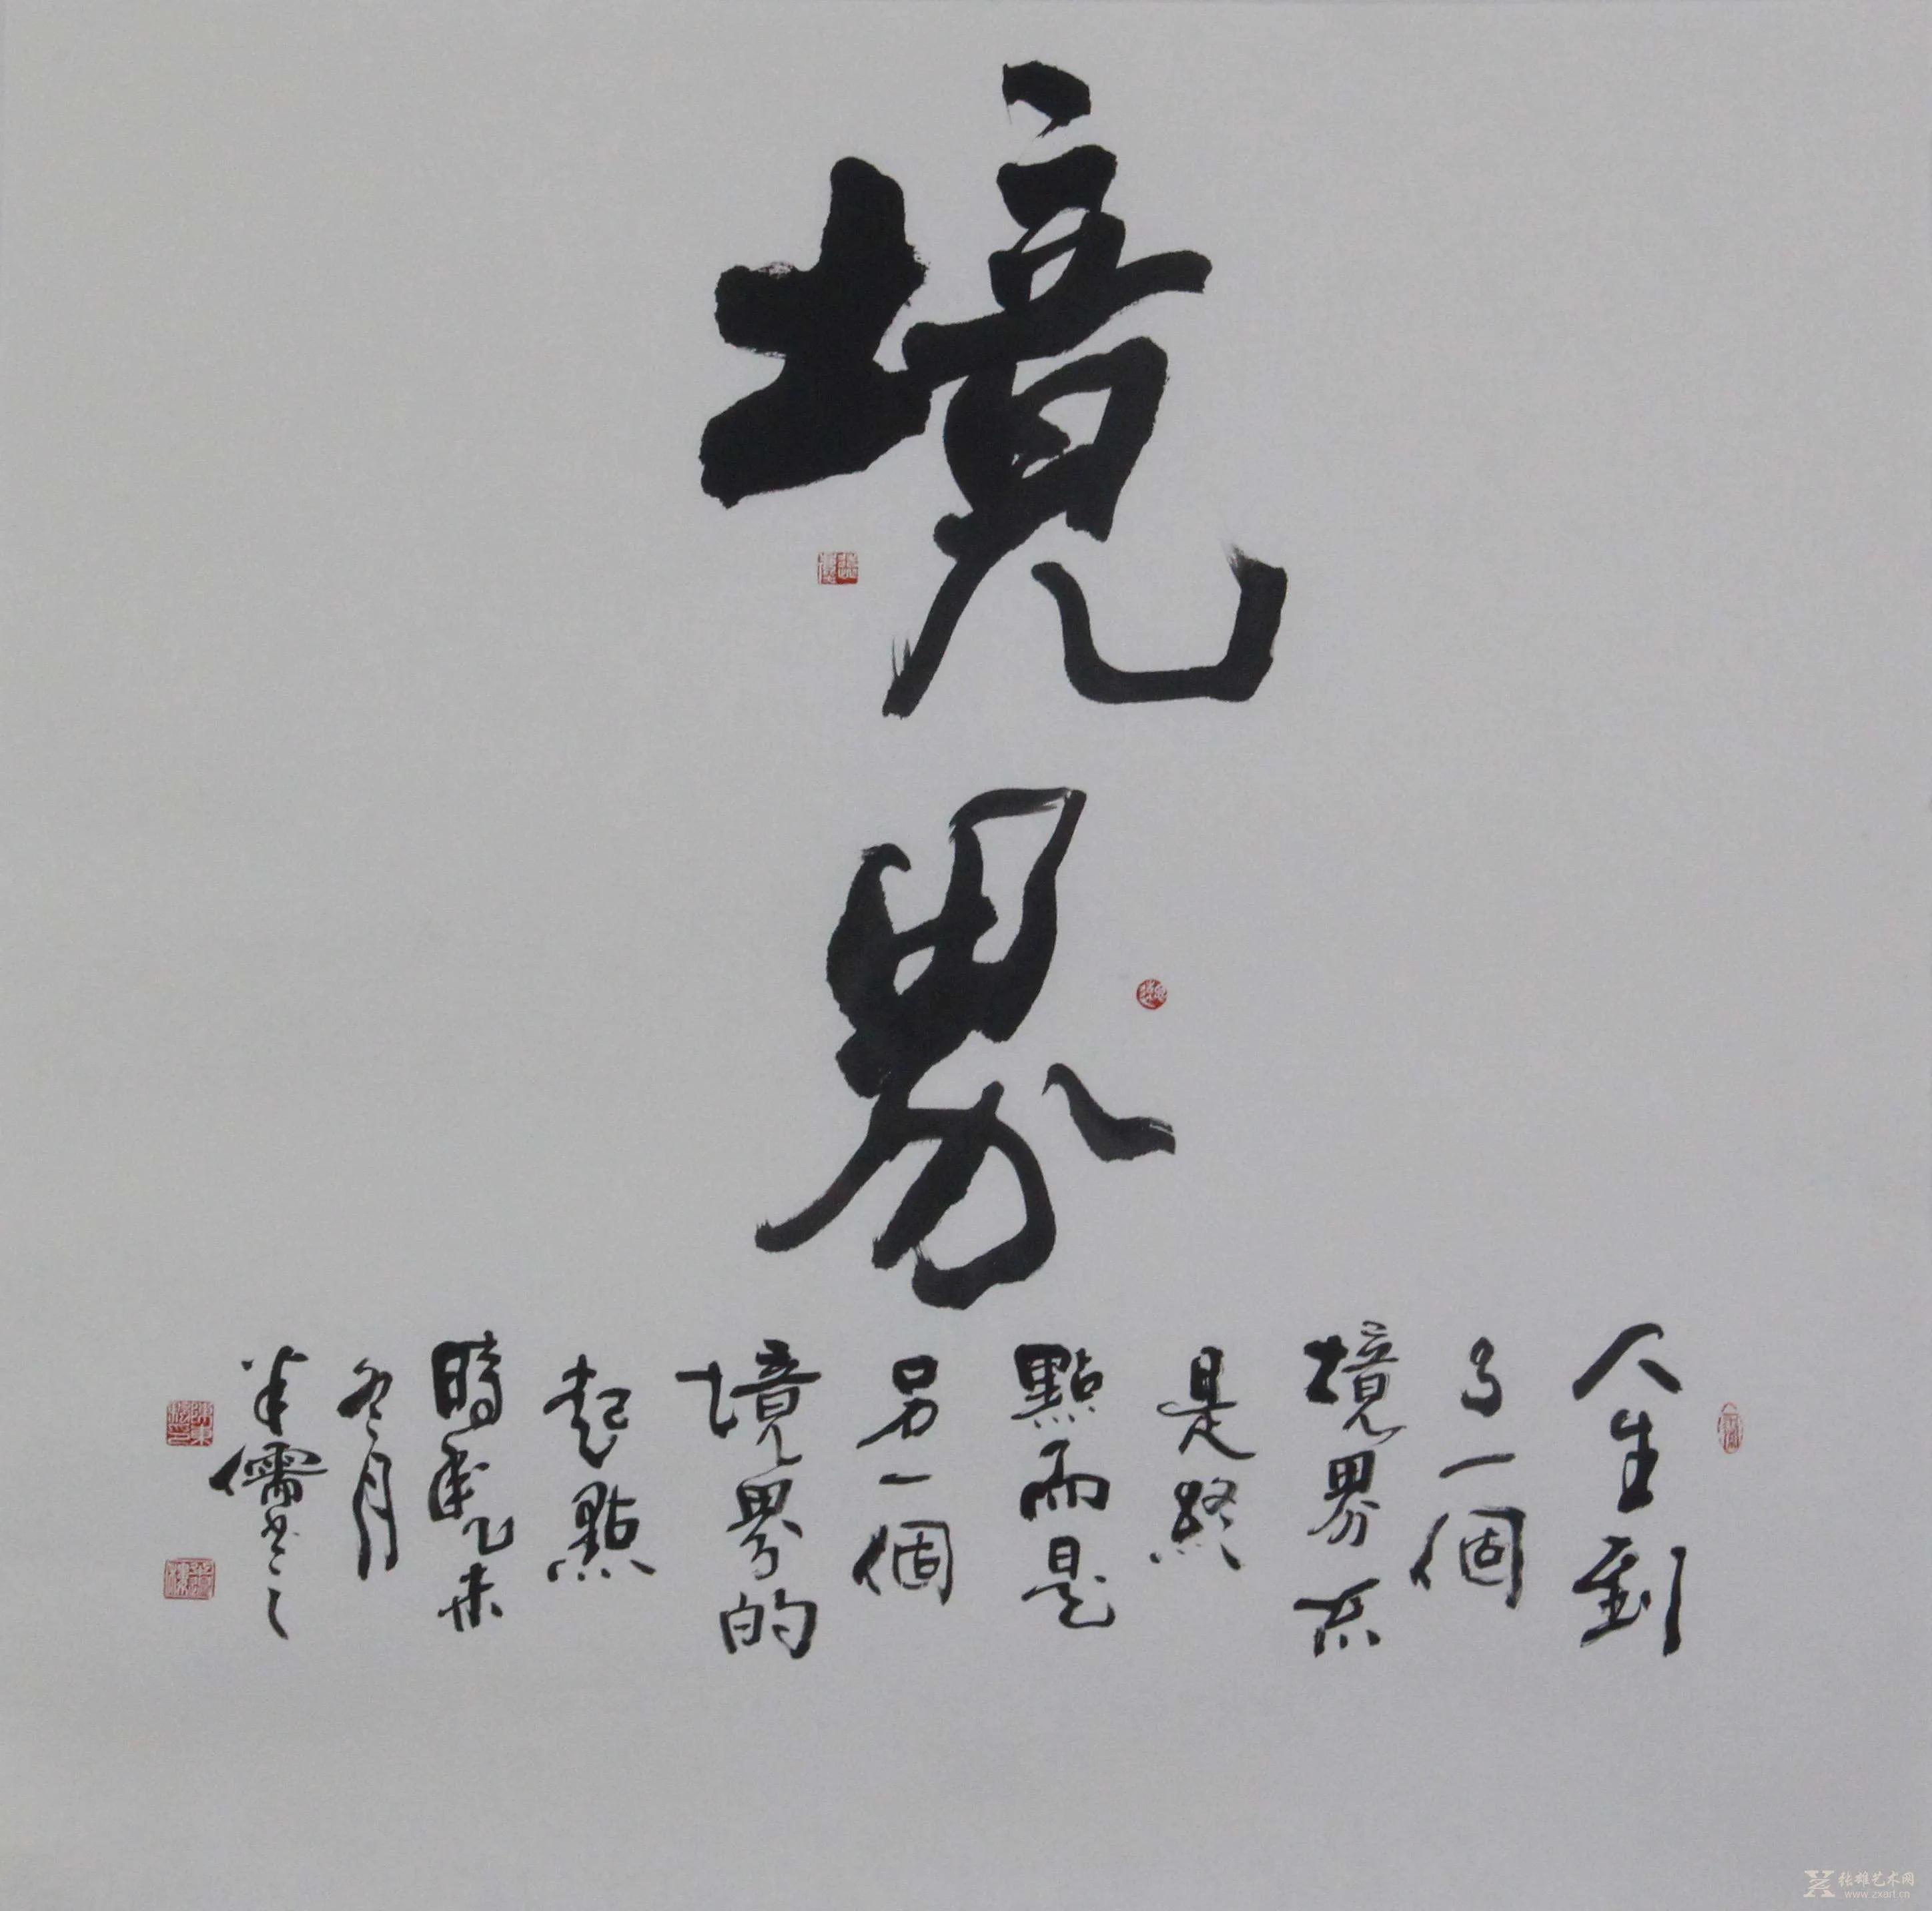 境界
人生到
了一個
境界不
是終
點而是
另一個
境界的
起點
時季乙未
冬月
半儒書之
张雄艺术网
www.zxart.cn